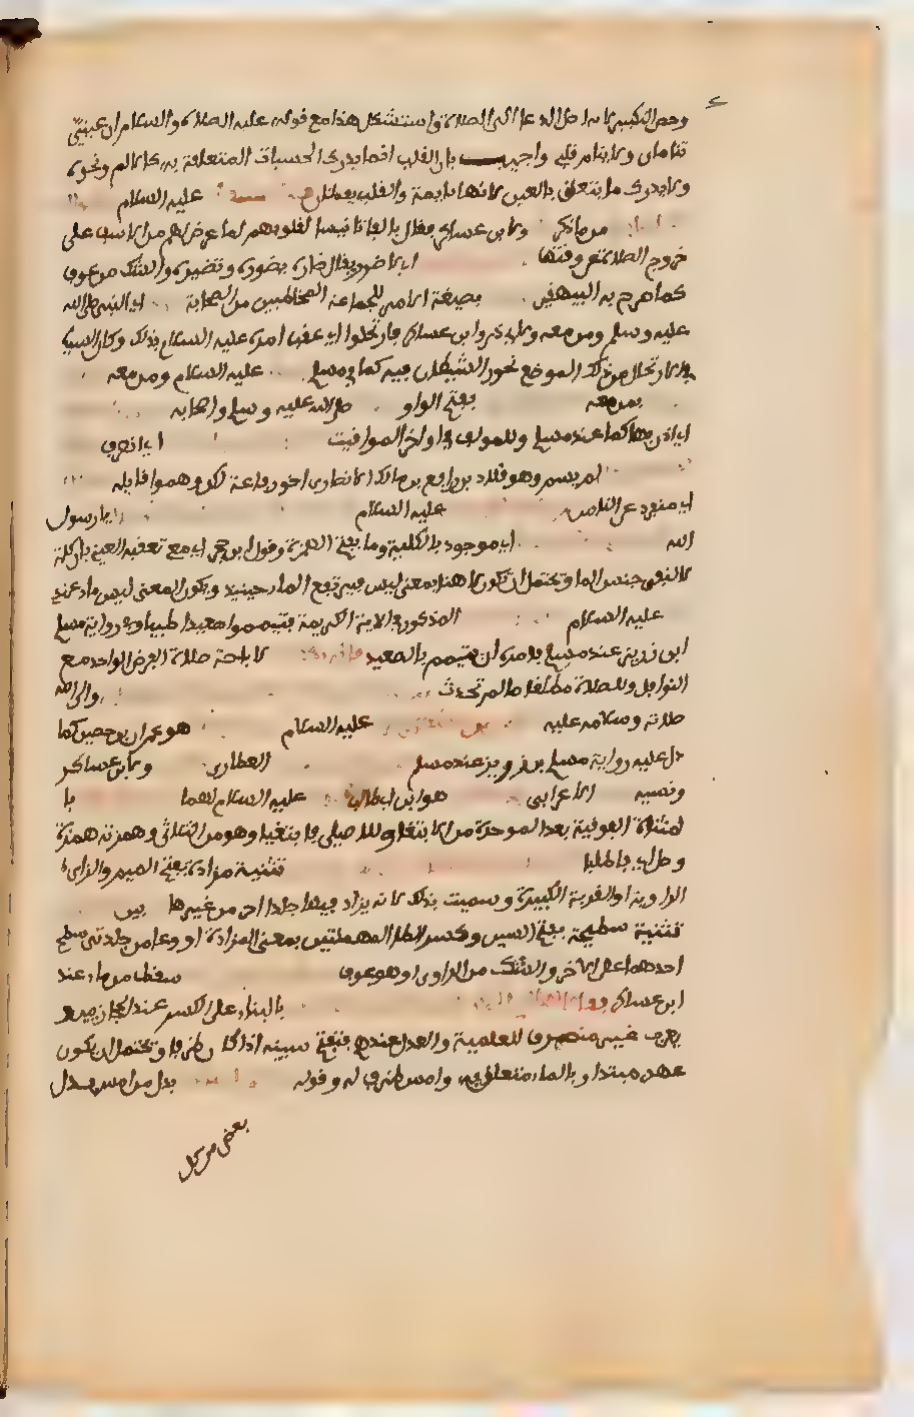 وخص التكبير لانه اصل الدعا الى الصلاة واستشكل هذا مع قوله عليه الصلاة والسلام ان عينيّ
تنامان ولا ينام قلبي واجيب بان القلب انما يدرك الحسيات المتعلقة به كالالم ونحوه
ولا يدرك ما يتعلق بالعين لانها نايمة والقلب يقظان عليه السلام
ولابن عساكر فقال بالفا تانيسا لقلوبهم لما عرض لهم من الاسف على
خروج الصلاة عن وقتها اي لا ضرر يقال ضاره يضوره ويضيره والشك من عوف
كما صرح به البيهقي بصيغة الامر للجماعة المخاطبين من الصحابة اي النبي صلى الله
عليه وسلم ومن معه ولابي ذر وابن عساكر فارتحلوا اي عقب امره عليه السلام بذلك وكان السبب
في الارتحال من ذلك الموضع حضور الشيطان فيه كما في مسلم عليه السلام ومن معه
بمن معه بفتح الواو صلى الله عليه وسلم واصحابه
اي اذن بها كما عند مسلم وللمولف في اواخر المواقيت اي انصرف
لم يسم وهو خلاد بن رافع بن مالك الانصاري اخو رفاعة لكن وهموا قايله
اي منفرد عن الناس عليه السلام يا رسول
الله اي موجود بالكلية وما بفتح الهمزة وقول ابن حجر اي معه تعقبه العيني بان كلمة
لا لنفي جنس الما ويحتمل ان تكون لا هنا بمعنى ليس فيرتفع الما حينيذ ويكون المعنى ليس ماء عندي
عليه السلام المذكور في الاية الكريمة فتيمموا صعيدا طيبا وفي رواية مسلم
ابن زرير عند مسلم فامره ان يتيمم بالصعيد لاباحة صلاة الفرض الواحد مع
النوافل وللصلاة مطلقا ما لم تحدث والى الله
صلاته وسلامه عليه عليه السلام هو عمران بن حصين كما
دل عليه رواية مسلم بن زرير عند مسلم العطاردي ولابن عساكر
ونسيه الاعرابي هو ابن ابي طالب عليه السلام لهما با
لمثناة الفوقية بعد الموحدة من الابتغا وللاصيلي فابغيا وهو من الثلاثي وهمزته همزة
وصل اي فاطلبا تثنية مزادة بفتح الميم والزاي
الراوية او القربة الكبيرة وسميت بذلك لانه يزاد فيها جلد اخر من غيرها بين
تثنية سطيحة بفتح السين وكسر الطا المهملتين بمعنى المزادة او وعا من جلدتين سطح
احدهما على الاخر والشك من الراوي او هو عوف سقط من ماء عند
ابن عساكر فقالا لها بالبناء على الكسر عند الحجازيين و
يعرب غير منصرف للعلمية والعدل عند تميم فتفتح سينه اذا كان ظرفا ويحتمل ان يكون
عهدي مبتدا وبالماء متعلق به وامس ظرف له وقوله بدل من امس بدل
بعض من كل